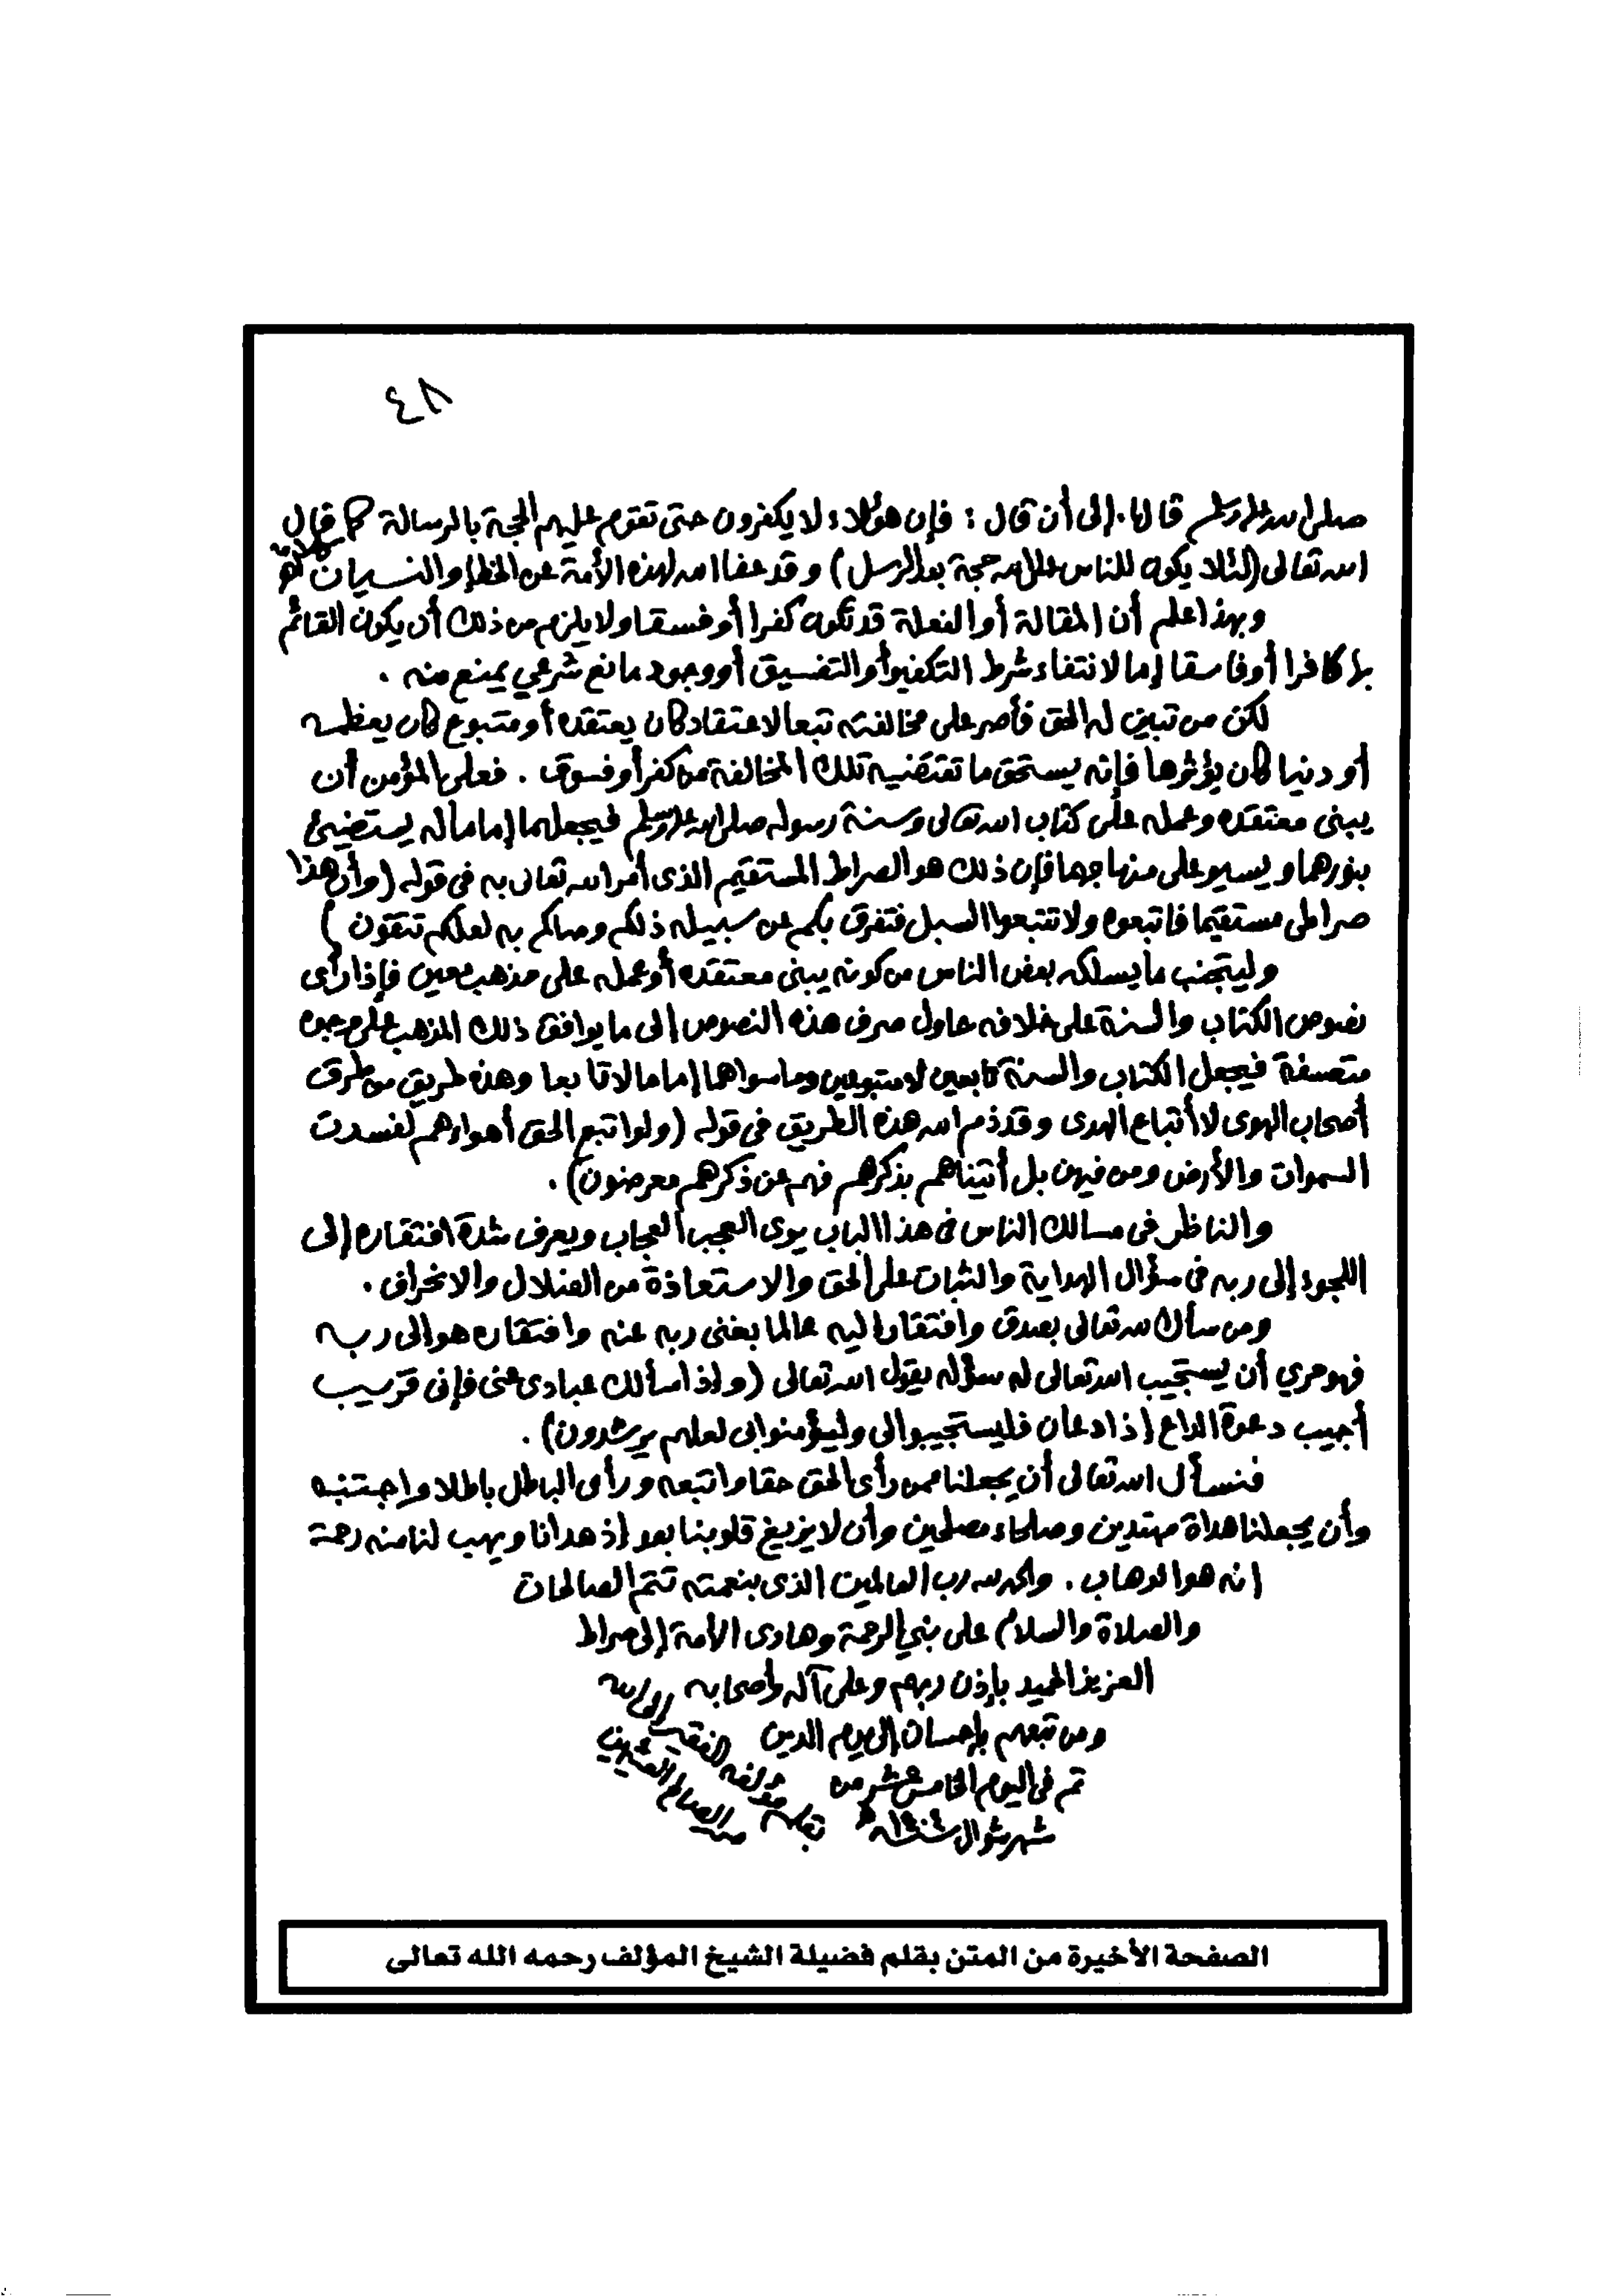 ٤٨
صلى الله عليه وسلم قالها. إلى أن قال : فإن هؤلاء لا يكفرون حتى تقوم عليهم الحجة بالرسالة كما قال
الله تعالى (لئلا يكون للناس على الله حجة بعد الرسل) وقد عفا الله لهذه الأمة عن الخطإ والنسيان
وبهذا علم أن المقالة أو الفعلة قد تكون كفرا أو فسقا ولا يلزم من ذلك أن يكون القائم
بها كافرا أو فاسقا إما لانتفاء شرط التكفير أو التفسيق أو وجود مانع شرعي يمنع منه .
لكن من تبين له الحق فأصر على مخالفته تبعا لاعتقاد كان يعتقده أو متبوع كان يعظمه
أو دنيا كان يؤثرها فإنه يستحق ما تقتضيه تلك المخالفة من كفر أو فسوق . فعلى المؤمن أن
يبنى معتقده وعمله على كتاب الله تعالى وسنة رسوله صلى الله عليه وسلم فيجعلهما إماما له يستضيئ
بنورهما ويسير على منهاجهما فإن ذلك هو الصراط المستقيم الذى أمر الله تعالى به فى قوله (وأن هذا
صراطى مستقيما فاتبعوه ولا تتبعوا السبل فتفرق بكم عن سبيله ذلكم وصاكم به لعلكم تتقون )
وليتجنب ما يسلكه بعض الناس من كونه يبنى معتقده أو عمله على مذهب معين فإذا رأى
نصوص الكتاب والسنة على خلافه حاول صرف هذه النصوص إلى ما يوافق ذلك المذهب على وجوه
متعسفة فيجعل الكتاب والسنة تابعين لا متبوعين وما سواهما إماما لا تابعا وهذه طريق من طرق
أصحاب الهوى لا أتباع الهدى وقد ذم الله هذه الطريق فى قوله (ولو اتبع الحق أهواءهم لفسدت
السموات والأرض ومن فيهن بل أتيناهم بذكرهم فهم عن ذكرهم معرضون) .
والناظر فى مسالك الناس فى هذا الباب يرى العجب العجاب ويعرف شدة افتقاره إلى
اللجوء إلى ربه فى سؤال الهداية والثبات على الحق والاستعاذة من الضلال والانحراف .
ومن سأل الله تعالى بصدق وافتقار إليه عالما بغنى ربه عنه وافتقاره هو إلى ربه
فهو حري أن يستجيب الله تعالى له سؤله يقول الله تعالى (وإذا سألك عبادى عنى فإنى قريب
أجيب دعوة الداع إذا دعان فليستجيبوا لى وليؤمنوا بى لعلهم يرشدون) .
فنسأل الله تعالى أن يجعلنا ممن رأى الحق حقا واتبعه ورأى الباطل باطلا واجتنبه
وأن يجعلنا هداة مهتدين وصلحاء مصلحين وأن لا يزيغ قلوبنا بعد إذ هدانا ويهب لنا منه رحمة
انه هو الوهاب . والحمد لله رب العالمين الذى بنعمته تتم الصالحات
والصلاة والسلام على نبي الرحمة وهادى الأمة إلى صراط
العزيز الحميد بإذن ربهم وعلى آله وأصحابه
ومن تبعهم بإحسان إلى يوم الدين
تم فى اليوم الخامس عشر من
شهر شوال سنة ١٤٠٤هـ
بقلم مؤلفه الفقير إلى الله
محمد الصالح العثيمين
الصفحة الأخيرة من المتن بقلم فضيلة الشيخ المؤلف رحمه الله تعالى